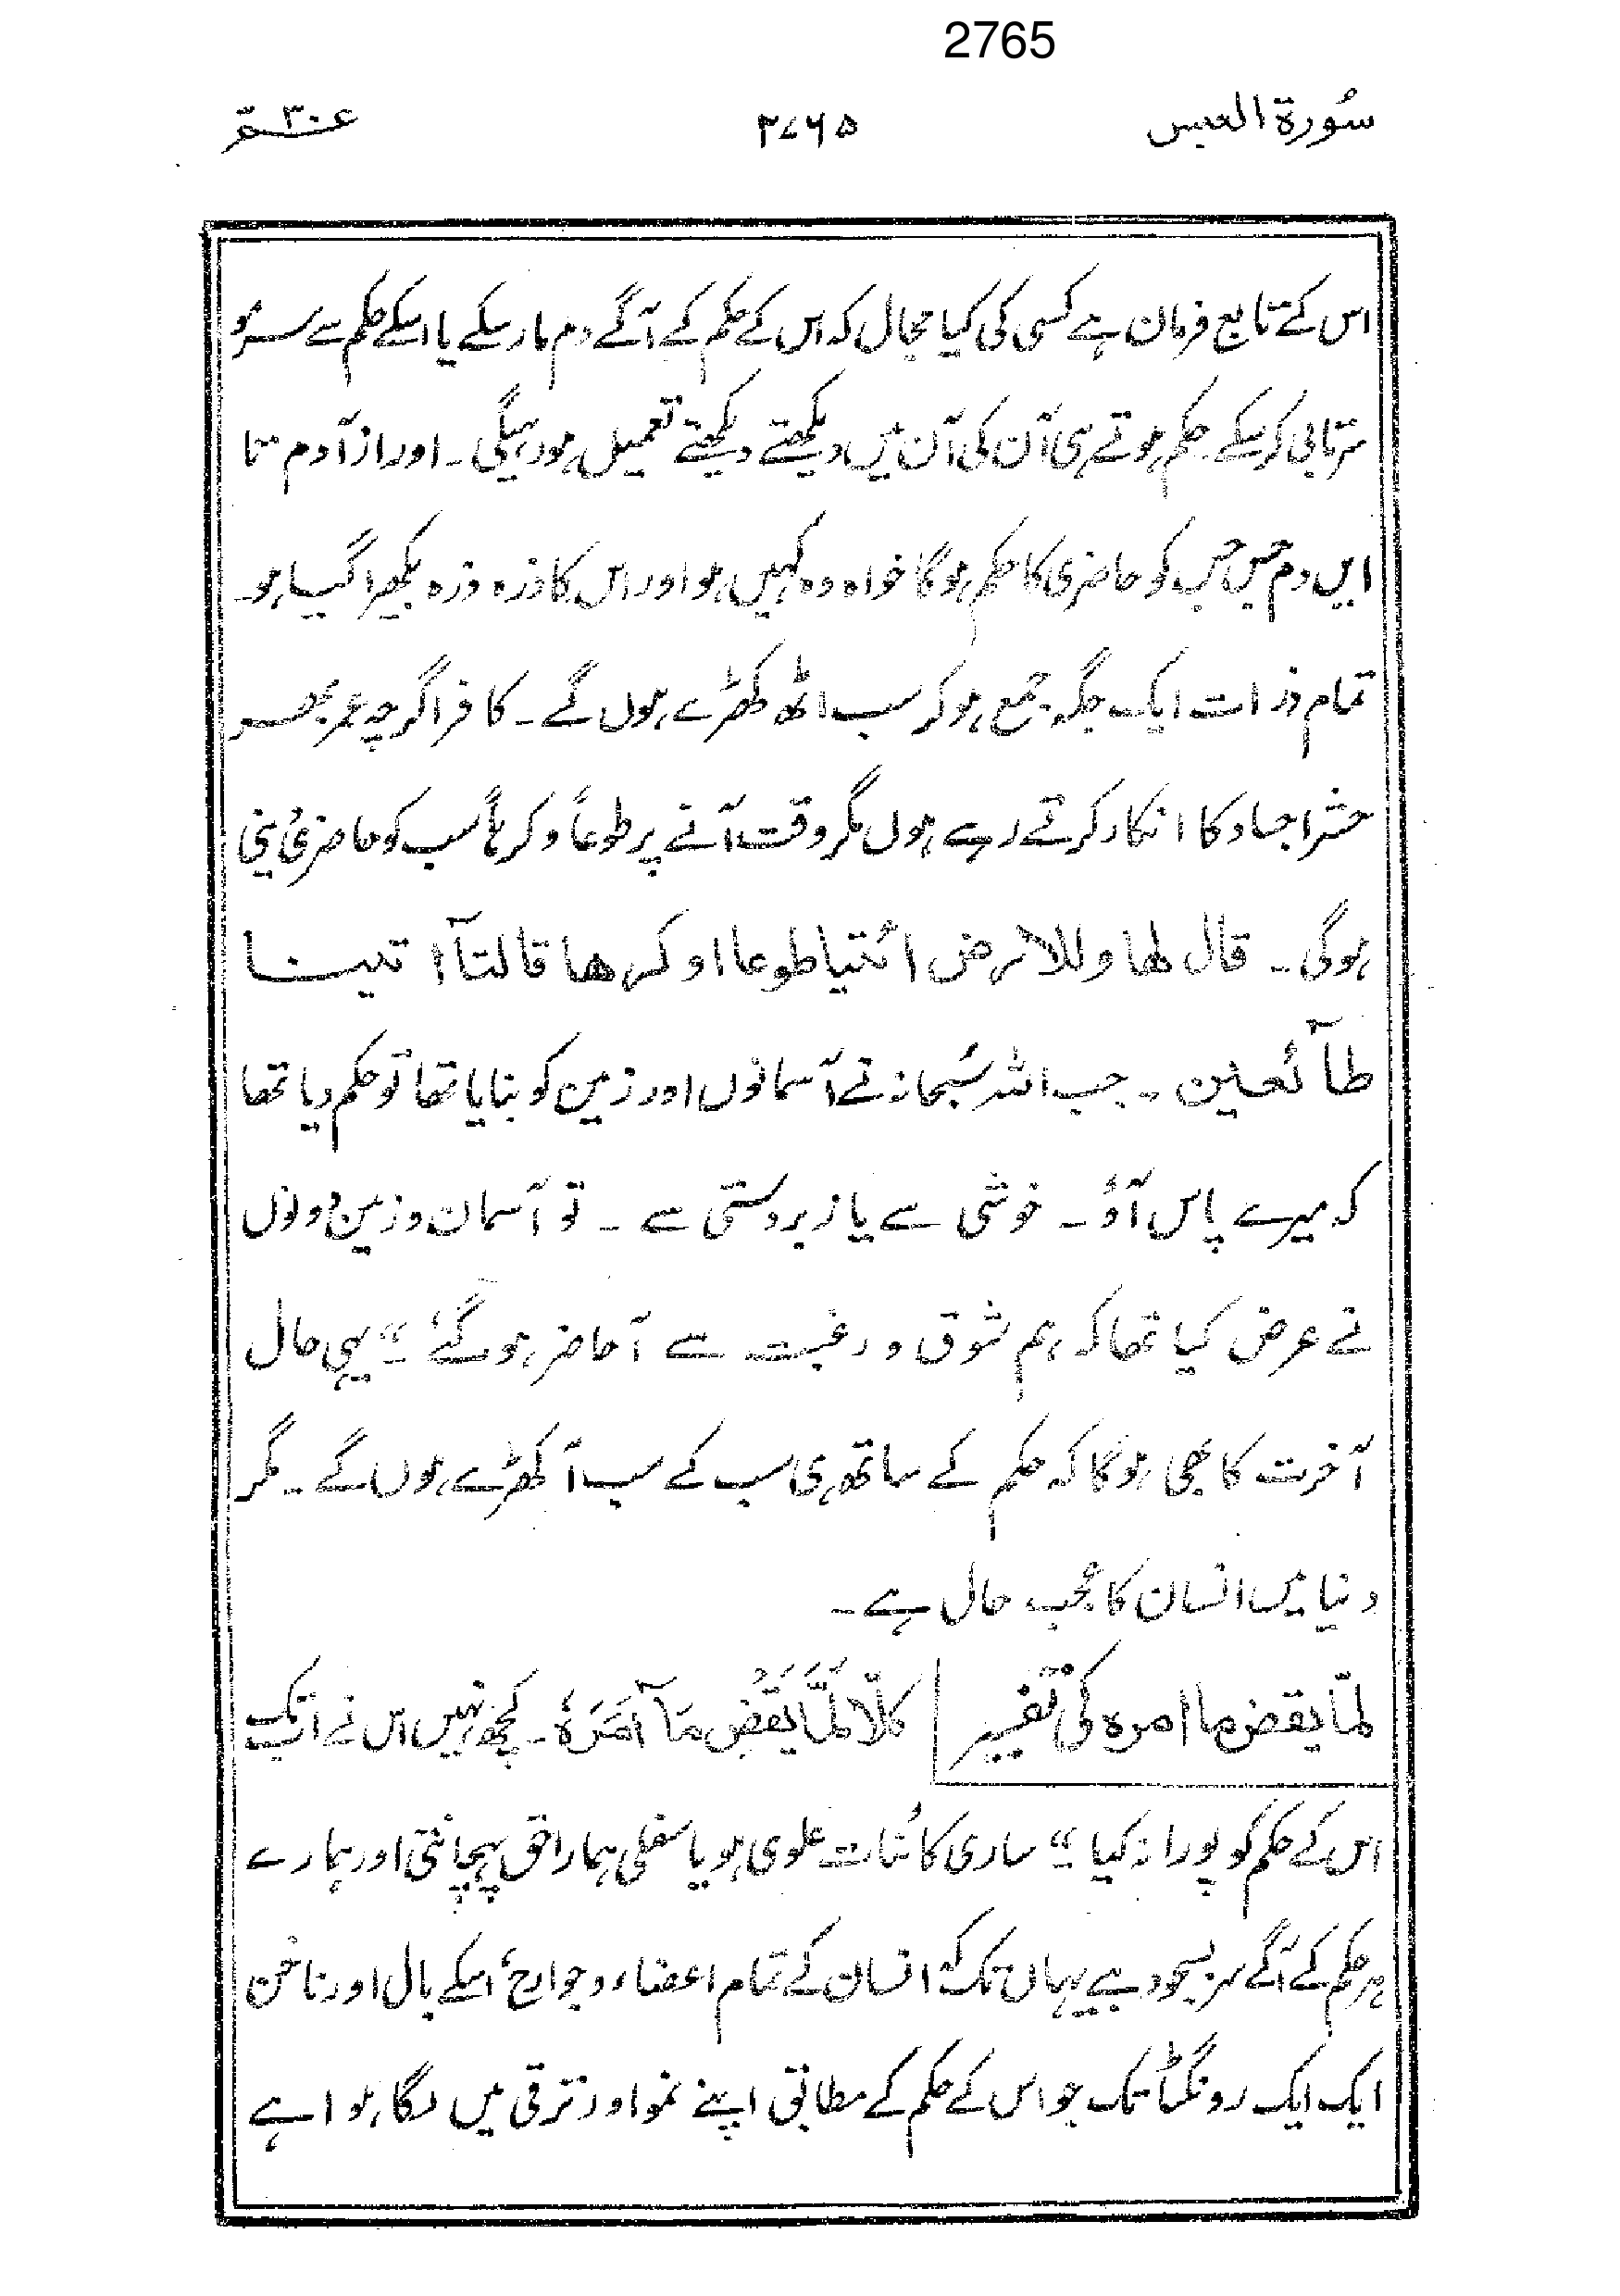 2765
سُورة العبس
۲۷۶۵
عـ۳۰ـم
اس کے تابع فرمان ہے کسی کی کیا مجال کہ اس کے حکم کے آگے دم مار سکے یا اسکے حکم سے سرمُو
سرتابی کر سکے۔ حکم ہوتے ہی آن کی آن میں دیکھتے دیکھتے تعمیل ہو رہیگی۔ اور از آدم تا
ایں دم جس جس کو حاضری کا حکم ہوگا خواہ وہ کہیں ہو اور اس کا ذرہ ذرہ بکھرا گیا ہو۔
تمام ذرات ایک جگہ جمع ہو کر سب اٹھ کھڑے ہوں گے۔ کافر اگرچہ عمر بھر
حشر اجساد کا انکار کرتے رہے ہوں مگر وقت آنے پر طوعاً و کرہاً سب کو حاضری دینی
ہوگی۔ قال لھا وللارض ائتیا طوعا او کرھا قالتآ اتینا
طآئعین۔ جب اللہ سُبحانہ نے آسمانوں اور زمین کو بنایا تھا تو حکم دیا تھا
کہ میرے پاس آؤ۔ خوشی سے یا زبردستی سے۔ تو آسمان و زمین دونوں
نے عرض کیا تھا کہ ہم شوق و رغبت سے آحاضر ہو گئے۔“ یہی حال
آخرت کا بھی ہوگا کہ حکم کے ساتھ ہی سب کے سب آ کھڑے ہوں گے۔ مگر
دنیا میں انسان کا عجب حال ہے۔
لمّا یقض ما امرہ کی تفسیر
کَلَّا لَمَّا یَقْضِ مَآ اَمَرَہٗ۔ کچھ نہیں اس نے اب تک
اس کے حکم کو پورا نہ کیا۔“ ساری کائنات علوی ہو یا سفلی ہمارا حق پہچانتی اور ہمارے
ہر حکم کے آگے سر بسجود ہے یہاں تک کہ انسان کے تمام اعضاء و جوارح، اسکے بال اور ناخن
ایک ایک رونگٹا تک جو اس کے حکم کے مطابق اپنے نمو اور ترقی میں لگا ہوا ہے